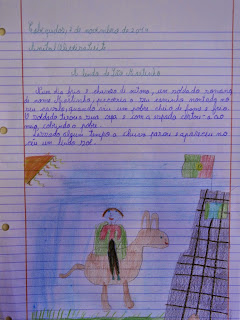 6 de novembro de 2010
A lenda de São Martinho
Num dia frio e chuvoso de outono, um soldado romano
de nome Martinho, percorria o seu caminho montado no
seu cavalo, quando viu um pobre cheio de fome e frio.
O soldado tirou a sua capa e com a espada cortou-a ao
meio, cobrindo o pobre.
Passado algum tempo a chuva parou e apareceu no
céu um lindo sol.